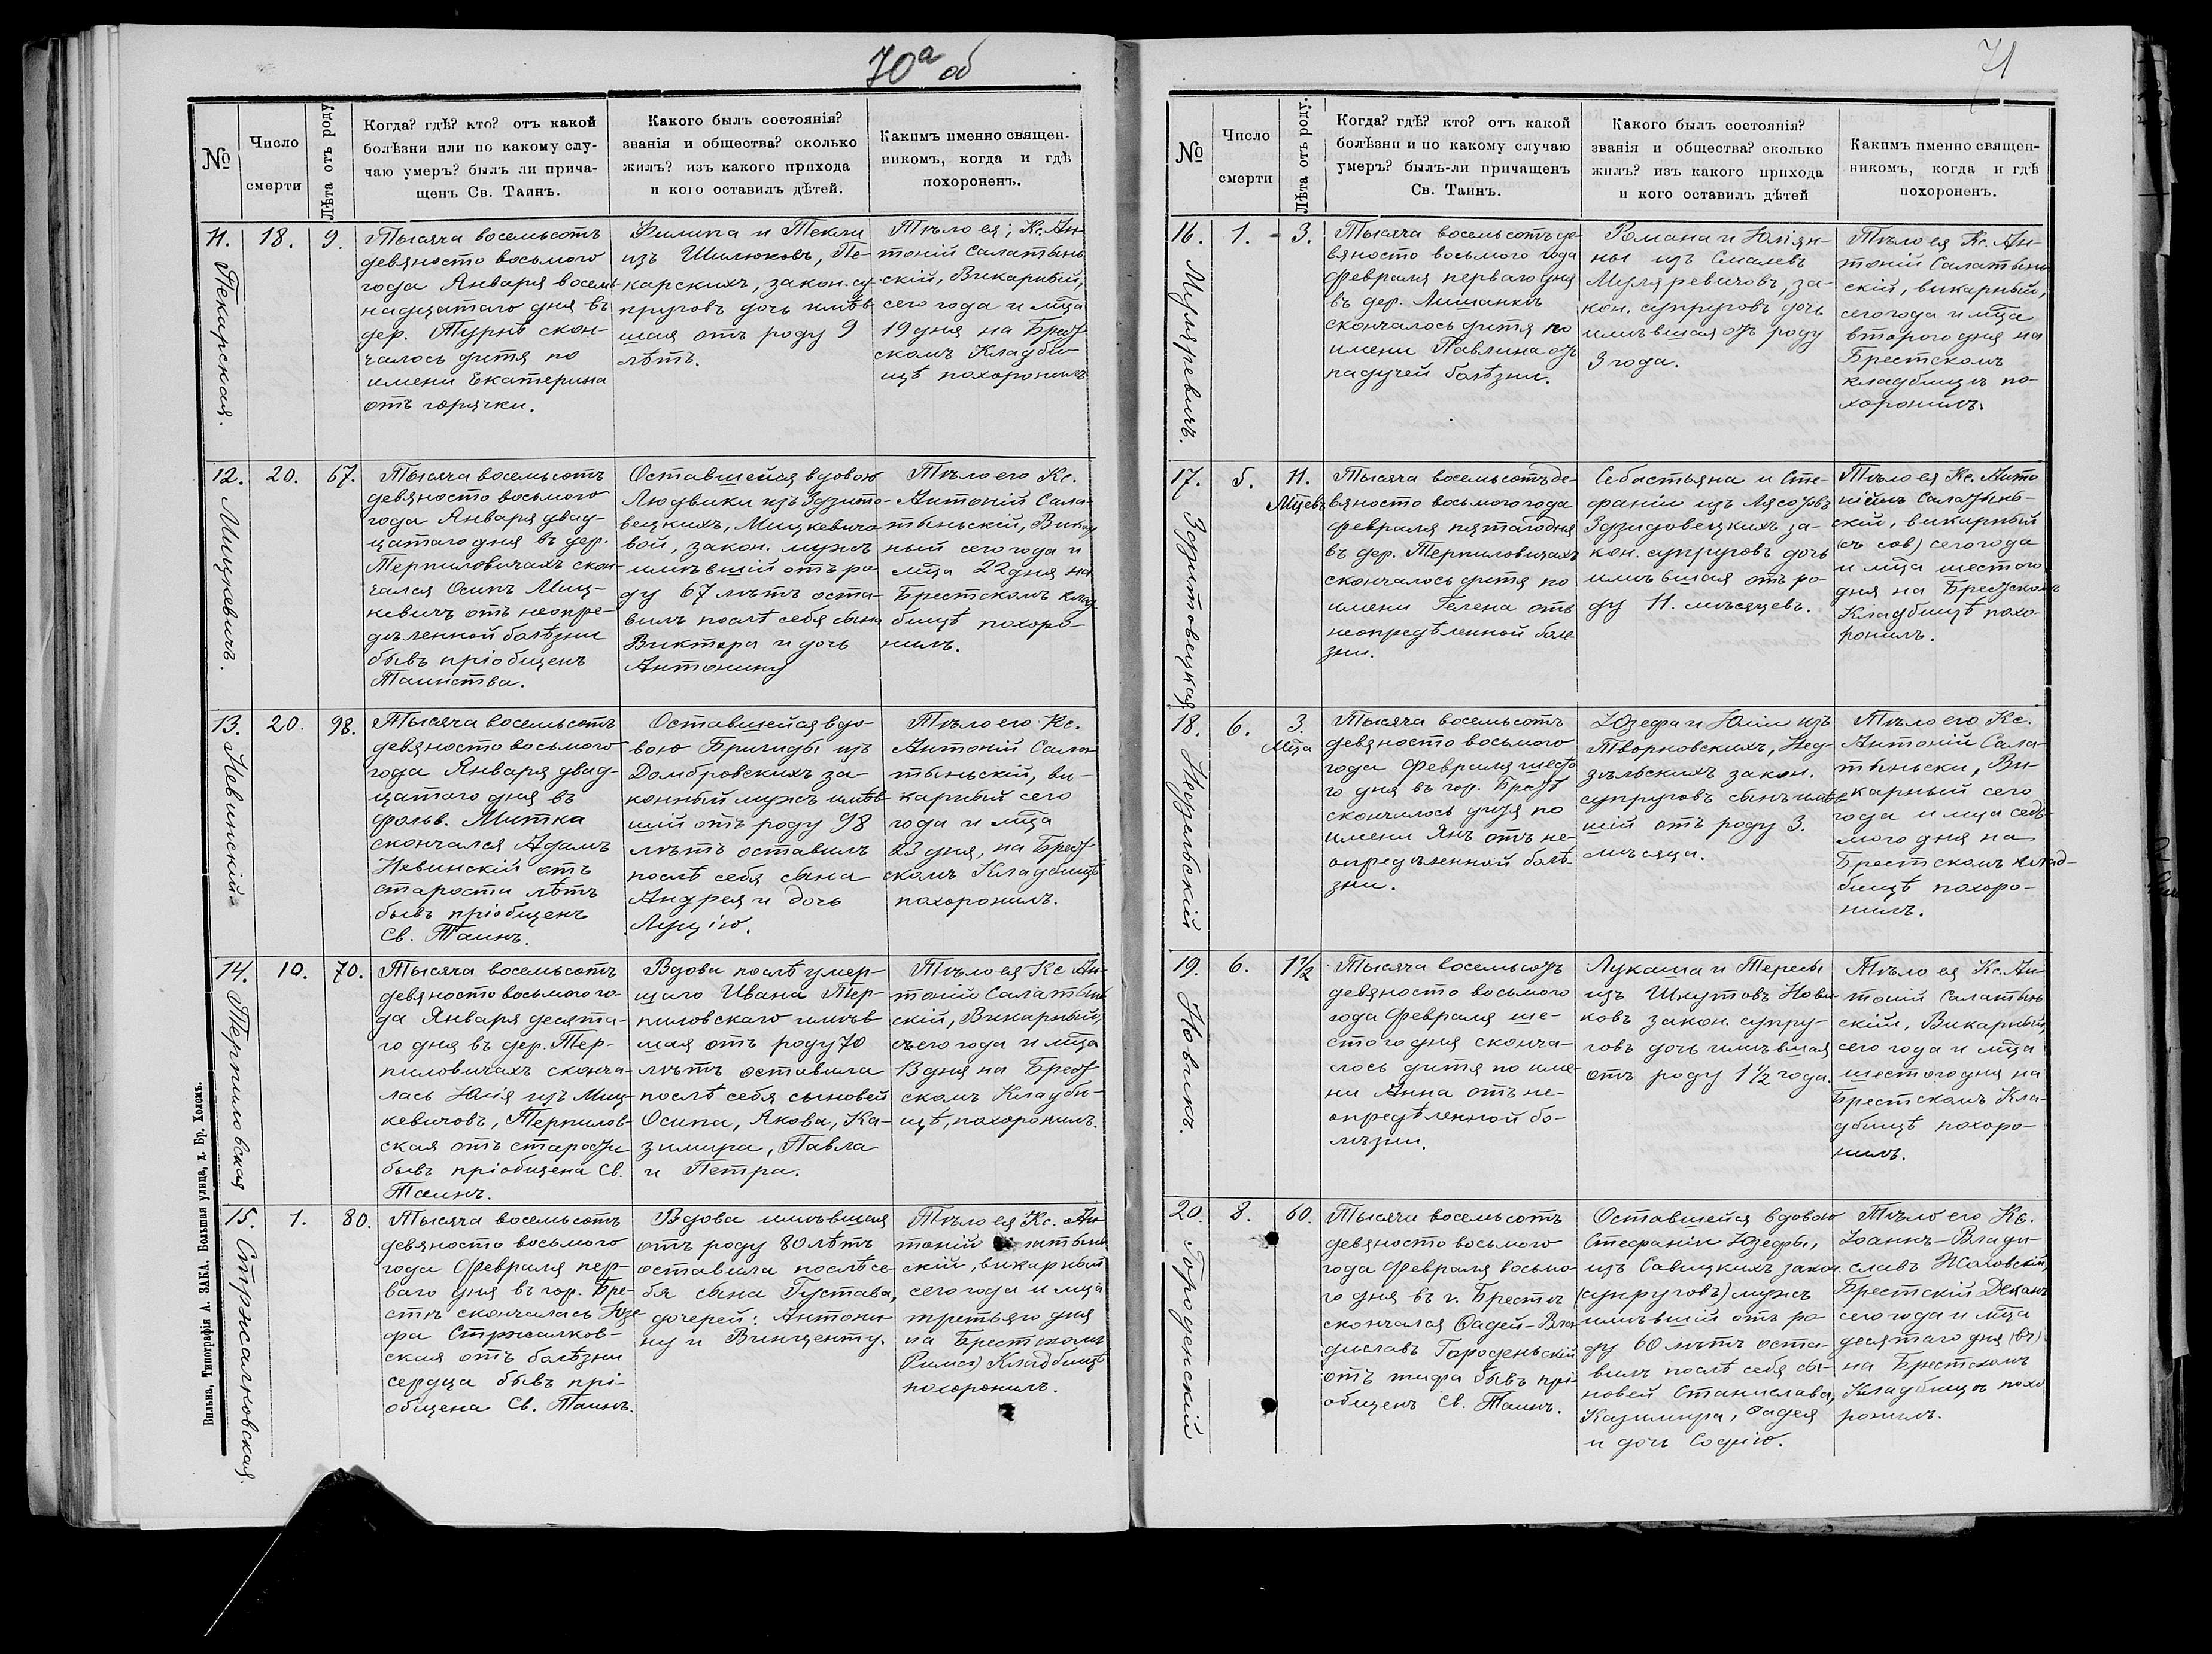 70а об
№
Число
смерти
Лѣта отъ роду
Когда? гдѣ? кто? отъ какой
болѣзни или по какому слу-
чаю умеръ? былъ ли прича-
щенъ Св. Таинъ.
Какого былъ состоянія?
званія и общества? сколько
жилъ? изъ какого прихода
и кого оставилъ дѣтей.
Какимъ именно священ-
никомъ, когда и гдѣ
похороненъ.
11.
Пекарская.
18.
9.
Тысяча восемьсотъ
девяносто восьмого
года Января восем-
надцатаго дня въ
дер. Турнѣ скон-
чалось дитя по
имени Екатерина
отъ горячки.
Филипа и Текли
изъ Шилюковъ, Пе-
карскихъ, закон. су-
пруговъ дочь имѣв-
шая отъ роду 9
лѣтъ.
Тѣло ея, Кс. Ан-
тоній Салатынь
скій, Викарный,
сего года и мца
19 дня на Брест
скомъ Кладби-
щѣ похоронилъ
12.
Мицкевичъ.
20.
67.
Тысяча восемьсотъ
девяносто восьмого
года Января двад-
цатаго дня въ дер.
Терпиловичахъ скон-
чался Осипъ Миц-
кевичъ отъ неопре-
дѣленной болѣзни
бывъ пріобщенъ
Таинства.
Оставшейся вдовою
Людвики изъ Здзито-
вецкихъ, Мицкевичо-
вой, закон. мужъ
имѣвшій отъ ро
ду 67 лѣтъ оста-
вилъ послѣ себя сына
Виктора и дочь
Антонину
Тѣло его Кс.
Антоній Сала-
тыньскій, Викар
ный сего года и
мца 22 дня на
Брестскомъ клад
бищѣ похоро-
нилъ.
13.
Невинскій
20.
98.
Тысяча восемьсотъ
девяносто восьмого
года Января двад-
цатаго дня въ
фольв. Митка
скончался Адамъ
Невинскій отъ
старости лѣтъ
бывъ пріобщенъ
Св. Таинъ.
Оставшейся вдо-
вою Бригиды изъ
Домбровскихъ за-
конный мужъ имѣв
шій отъ роду 98
лѣтъ оставилъ
послѣ себя сына
Андрея и дочь
Луцію.
Тѣло его Кс.
Антоній Сала-
тыньскій, ви-
карный сего
года и мца
23 дня, на Брест
скомъ Кладбищѣ
похоронилъ.
14.
Терпиловская
10.
70.
Тысяча восемьсотъ
девяносто восьмого го-
да Января десята-
го дня въ дер. Тер-
пиловичахъ сконча-
лась Юлія изъ Миц-
кевичовъ, Терпилов-
ская отъ старости
бывъ пріобщена Св.
Таинъ.
Вдова послѣ умер-
шаго Ивана Тер-
пиловскаго имѣв
шая отъ роду 70
лѣтъ оставила
послѣ себя сыновей
Осипа, Якова, Ка-
зимира, Павла
и Петра.
Тѣло ея Кс Ан-
тоній Салатынь
скій, Викарный,
сего года и мца
13 дня на Брест
скомъ Кладби-
щѣ, похоронилъ.
15.
Стржалковская.
1.
80.
Тысяча восемьсотъ
девяносто восьмого
года Февраля пер-
ваго дня въ гор. Бре-
стѣ скончалась Юзе
фа Стржалков-
ская отъ болѣзни
сердца бывъ прі-
общена Св. Таинъ.
Вдова имѣвшая
отъ роду 80 лѣтъ
оставила послѣ се-
бя сына Густава,
дочерей: Антони-
ну и Винценту.
Тѣло ея Кс. Ан-
тоній Салатынь
скій, викарный
сего года и мца
третьяго дня
на Брестскомъ
Римс) Кладбищѣ
похоронилъ.
Вильна, Типографія А. ЗАКА. Большая улица, д. Бр. Холемъ.
71
№
Число
смерти
Лѣта отъ роду.
Когда? гдѣ? кто? отъ какой
болѣзни и по какому случаю
умеръ? былъ-ли причащенъ
Св. Таинъ.
Какого былъ состоянія?
званія и общества? сколько
жилъ? изъ какого прихода
и кого оставилъ дѣтей
Какимъ именно священ-
никомъ, когда и гдѣ
похороненъ.
16.
Муляревичъ.
1.
3.
Тысяча восемьсотъ де-
вяносто восьмого года
Февраля перваго дня
въ дер. Лишанкѣ
скончалось дитя по
имени Павлина отъ
падучей болѣзни.
Романа и Юліян-
ны изъ Смалевъ
Муляревичовъ, за-
кон. супруговъ дочь
имѣвшая отъ роду
3 года.
Тѣло ея Кс. Ан-
тоній Салатынь
скій, викарный,
сего года и мца
второго дня на
Брестскомъ
кладбищѣ по-
хоронилъ.
17.
Здзитовецкая
5.
11.
Мцевъ
Тысяча восемьсотъ де-
вяносто восьмого года
февраля пятаго дня
въ дер. Терпиловичахъ
скончалось дитя по
имени Гелена отъ
неопредѣленной болѣ
зни.
Себастьяна и Сте-
фаніи изъ Лясотовъ
Здзидовецкихъ за-
кон. супруговъ дочь
имѣвшая отъ ро-
ду 11. мѣсяцевъ.
Тѣло ея Кс. Анто
ній Салатынь-
скій, викарный
(съ сов) сего года
и мца шестого
дня на Брестскомъ
Кладбищѣ похо-
ронилъ.
18.
Недзѣльскій
6.
3.
Мца
Тысяча восемьсотъ
девяносто восьмого
года Февраля шесто
го дня въ гор. Брестѣ
скончалось дитя по
имени Янъ отъ не-
опредѣленной болѣ-
зни.
Юзефа и Юліи изъ
Творковскихъ, Нед-
зѣльскихъ закон.
супруговъ сынъ имѣв
шій отъ роду 3.
мѣсяца.
Тѣло его Кс.
Антоній Сала-
тыньски, Ви-
карный сего
года и мца седь-
мого дня на
Брестскомъ клад-
бищѣ похоро-
нилъ.
19.
Новикъ.
6.
1 1/2
Тысяча восемьсотъ
девяносто восьмого
года Февраля ше-
стого дня сконча-
лось дитя по име-
ни Анна отъ не-
опредѣленной бо-
лѣзни.
Лукаша и Тересы
изъ Шкутовъ Нови-
ковъ закон. супру-
говъ дочь имѣвшая
отъ роду 1 1/2 года.
Тѣло ея Кс. Ан-
тоній Салатынь
скій, Викарный
сего года и мца
шестого дня на
Брестскомъ Кла-
дбищѣ похоро-
нилъ.
20.
Городенскій
8.
60.
Тысяча восемьсотъ
девяносто восьмого
года Февраля восьмо-
го дня въ г. Брестѣ
скончался Фадей-Вла-
диславъ Городеньскій
отъ тифа бывъ прі-
общенъ Св. Таинъ.
Оставшейся вдовою
Стефаніи Юзефы,
изъ Савицкихъ закон.
(супруговъ) мужъ
имѣвшій отъ ро
ду 60 лѣтъ оста-
вилъ послѣ себя сы-
новей Станислава,
Казимира, Фадея
и дочь Софію.
Тѣло его Кс.
Іоаннъ-Влади-
славъ Жаховскій,
Брестскій Деканъ
сего года и мца
десятаго дня (въ)
на Брестскомъ
Кладбищѣ похо
ронилъ.